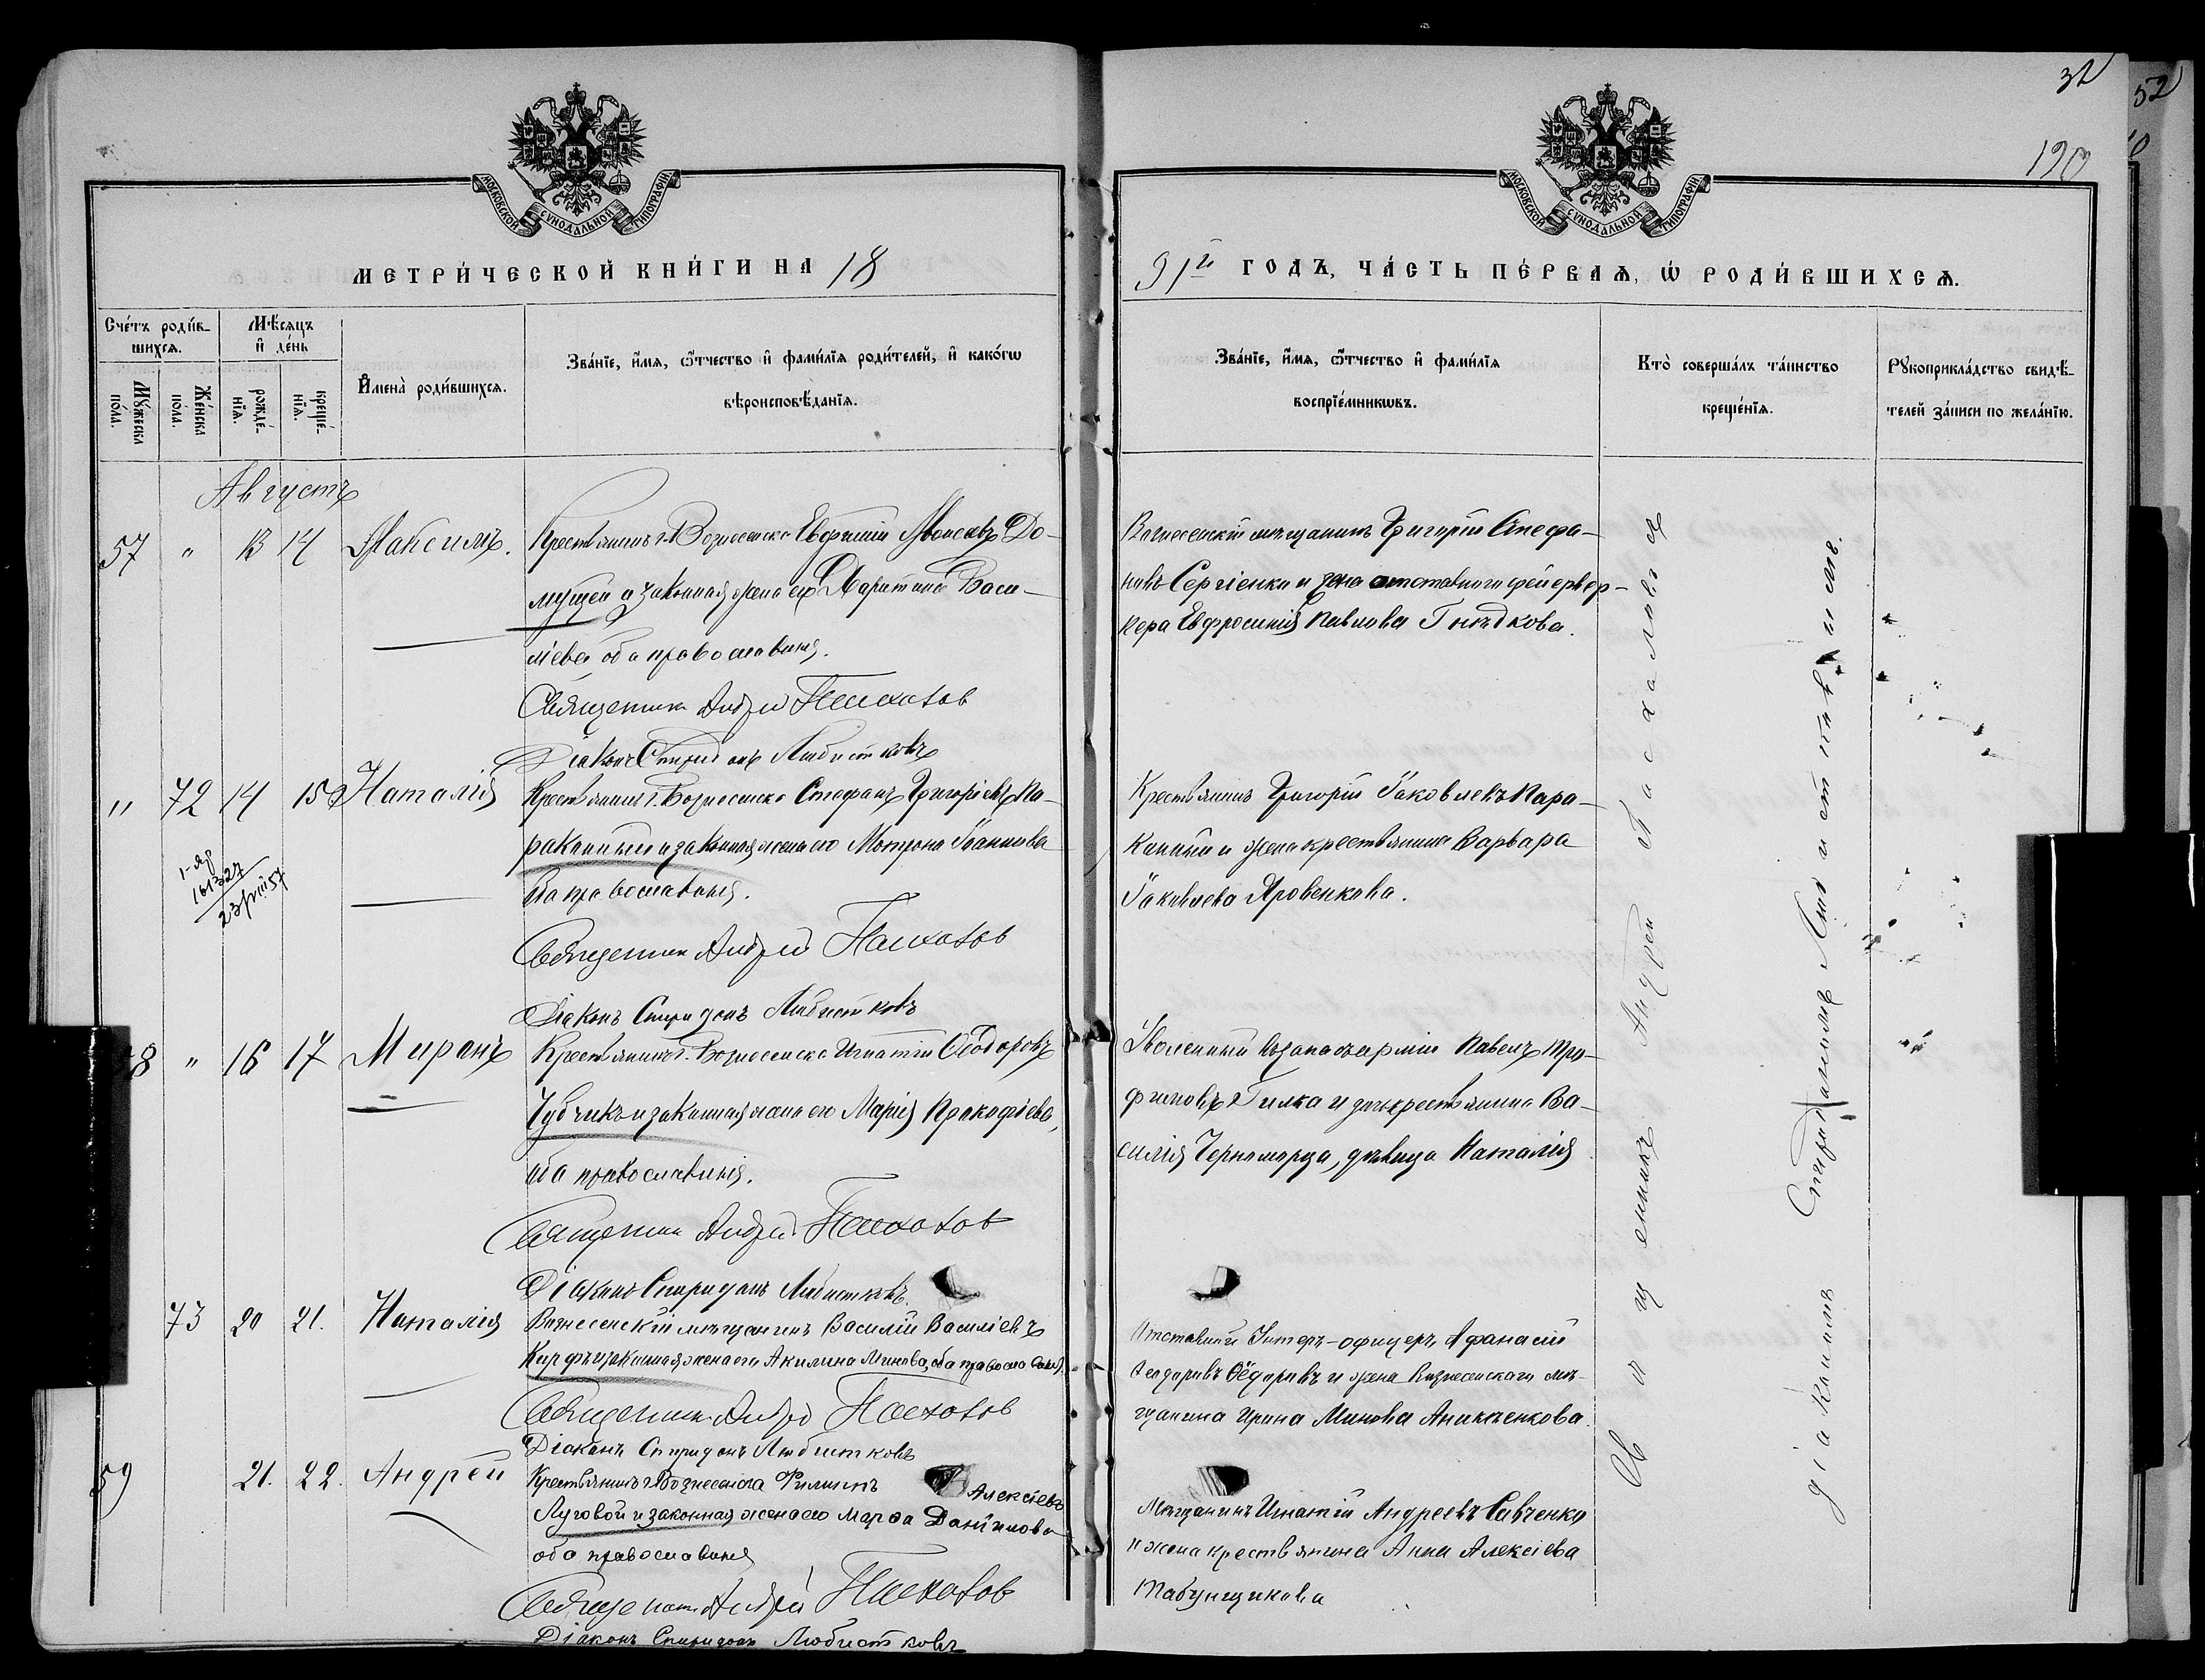 32
52
190
МОСКОВСКОЙ СУНОДАЛЬНОЙ ТИПОГРАФІИ
МОСКОВСКОЙ СУНОДАЛЬНОЙ ТИПОГРАФІИ
МЕТРИ́ЧЕСКОЙ КНИ́ГИ НА 18
91й ГОДЪ, ЧА́СТЬ ПЕ́РВАѦ, Ѡ РОДИ́ВШИХСѦ.
Сче́тъ роди́в-
шихсѧ.
Мѣ́сѧцъ
и де́нь
Мꙋжеска
по́ла.
Же́нска
по́ла.
рожде́-
нїѧ.
креще́-
нїѧ.
Имена̀ роди́вшихсѧ.
Зва́нїе, и́мѧ, ѻ́тчество и фами́лїѧ роди́телей, и како́гѡ
вѣроисповѣ́данїѧ.
Зва́нїе, и́мѧ, ѻ́тчество и фами́лїѧ
воспрїе́мникѡвъ.
Кто̀ соверша́лъ та́инство
креще́нїѧ.
Рꙋкоприкла́дство свидѣ́-
телей за́писи по жела́нїю.
Августъ
57 " 13 14 Максимъ.
Крестьянинъ г. Вознесенска Евфимій Моисеевъ До-
мущей и законная жена его Харитина Васи-
ліева оба православныя.
Священник Андрей Пасхалов
Діаконъ Спиридонъ Любистковъ
Вознесенскій мѣщанинъ Григорій Стефа-
новъ Сергіенко и жена отставнаго фейервер-
кера Евфросинія Павлова Гнѣдкова.
" 72 14 15 Наталія
Крестьянинъ г. Вознесенска Стефанъ Григорьевъ Ка-
раканный и законная жена его Матрона Іоаннова
оба православныя.
Священник Андрей Пасхалов
Діаконъ Спиридонъ Любистковъ
Крестьянинъ Григорій Іаковлевъ Кара-
канный и жена крестьянина Варвара
Іаковлева Яровенкова.
161327
23/VIII 57
58 " 16 17 Миронъ
Крестьянинъ г. Вознесенска Игнатій Ѳеодоровъ
Чубчикъ и законная жена его Марія Прокофіева,
оба православныя.
Священник Андрей Пасхалов
Діаконъ Спиридонъ Любистковъ.
Уволенный въ запасъ арміи Павелъ Тро-
фимовъ Гилка и дочь крестьянина Ва-
силія Черноморца, дѣвица Наталія
73 20 21. Наталія
Вознесенскій мѣщанинъ Василій Василіевъ
Кирфъ и законная жена его Акилина Минова, оба православныя.
Священник Андрей Пасхалов
Діаконъ Спиридонъ Любистковъ
Отставной Унтеръ-офицеръ Афанасій
Ѳеодоровъ Ѳёдоровъ и жена Вознесенскаго мѣ-
щанина Ирина Минова Аникеенкова.
59 21. 22. Андрей
Крестьянинъ г. Вознесенска Филиппъ Алексіевъ
Луговой и законная жена его Марѳа Даніилова
оба православныя
Священник Андрей Пасхалов
Діаконъ Спиридонъ Любистковъ
Мѣщанинъ Игнатій Андреевъ Савченко
и жена крестьянина Анна Алексіева
Табунщикова
Священникъ Андрей Пасхаловъ съ
діакономъ Спиридономъ Любистковымъ.